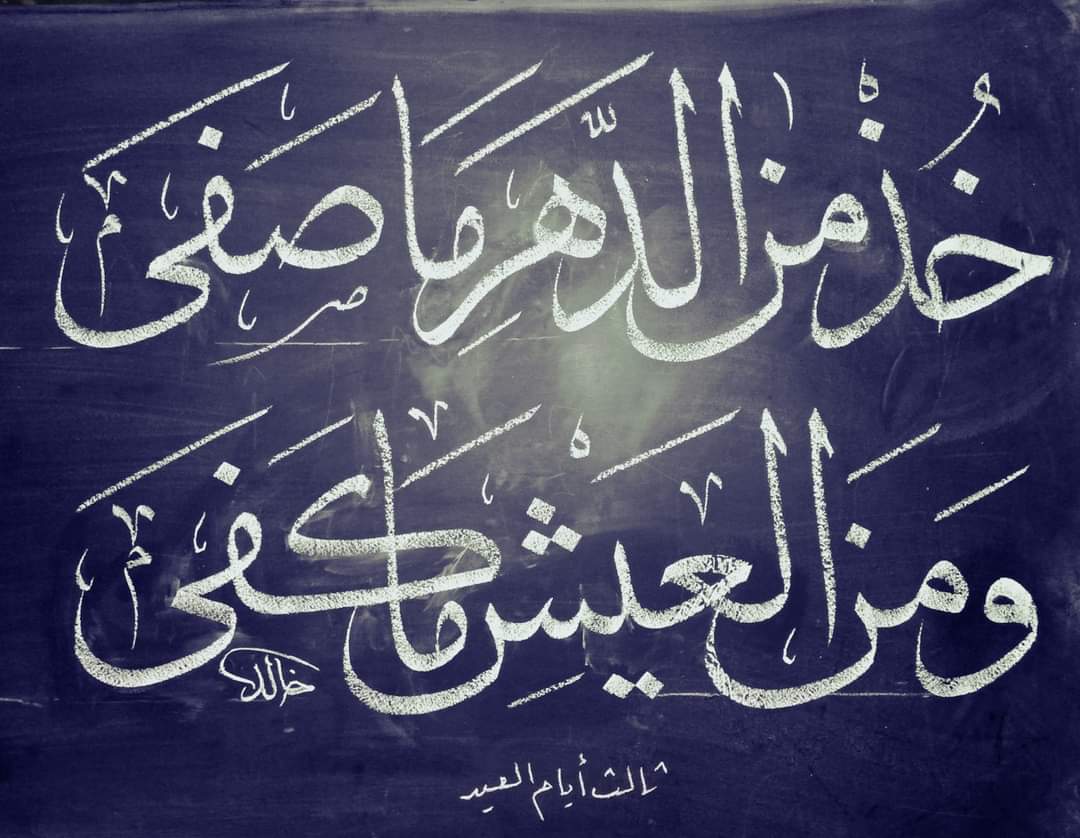 خُذْ مِنَ الدَّهْرِ مَا صَفَى
وَمِنَ الْعَيْشِ مَا كَفَى
خالد
ثالث أيام العيد